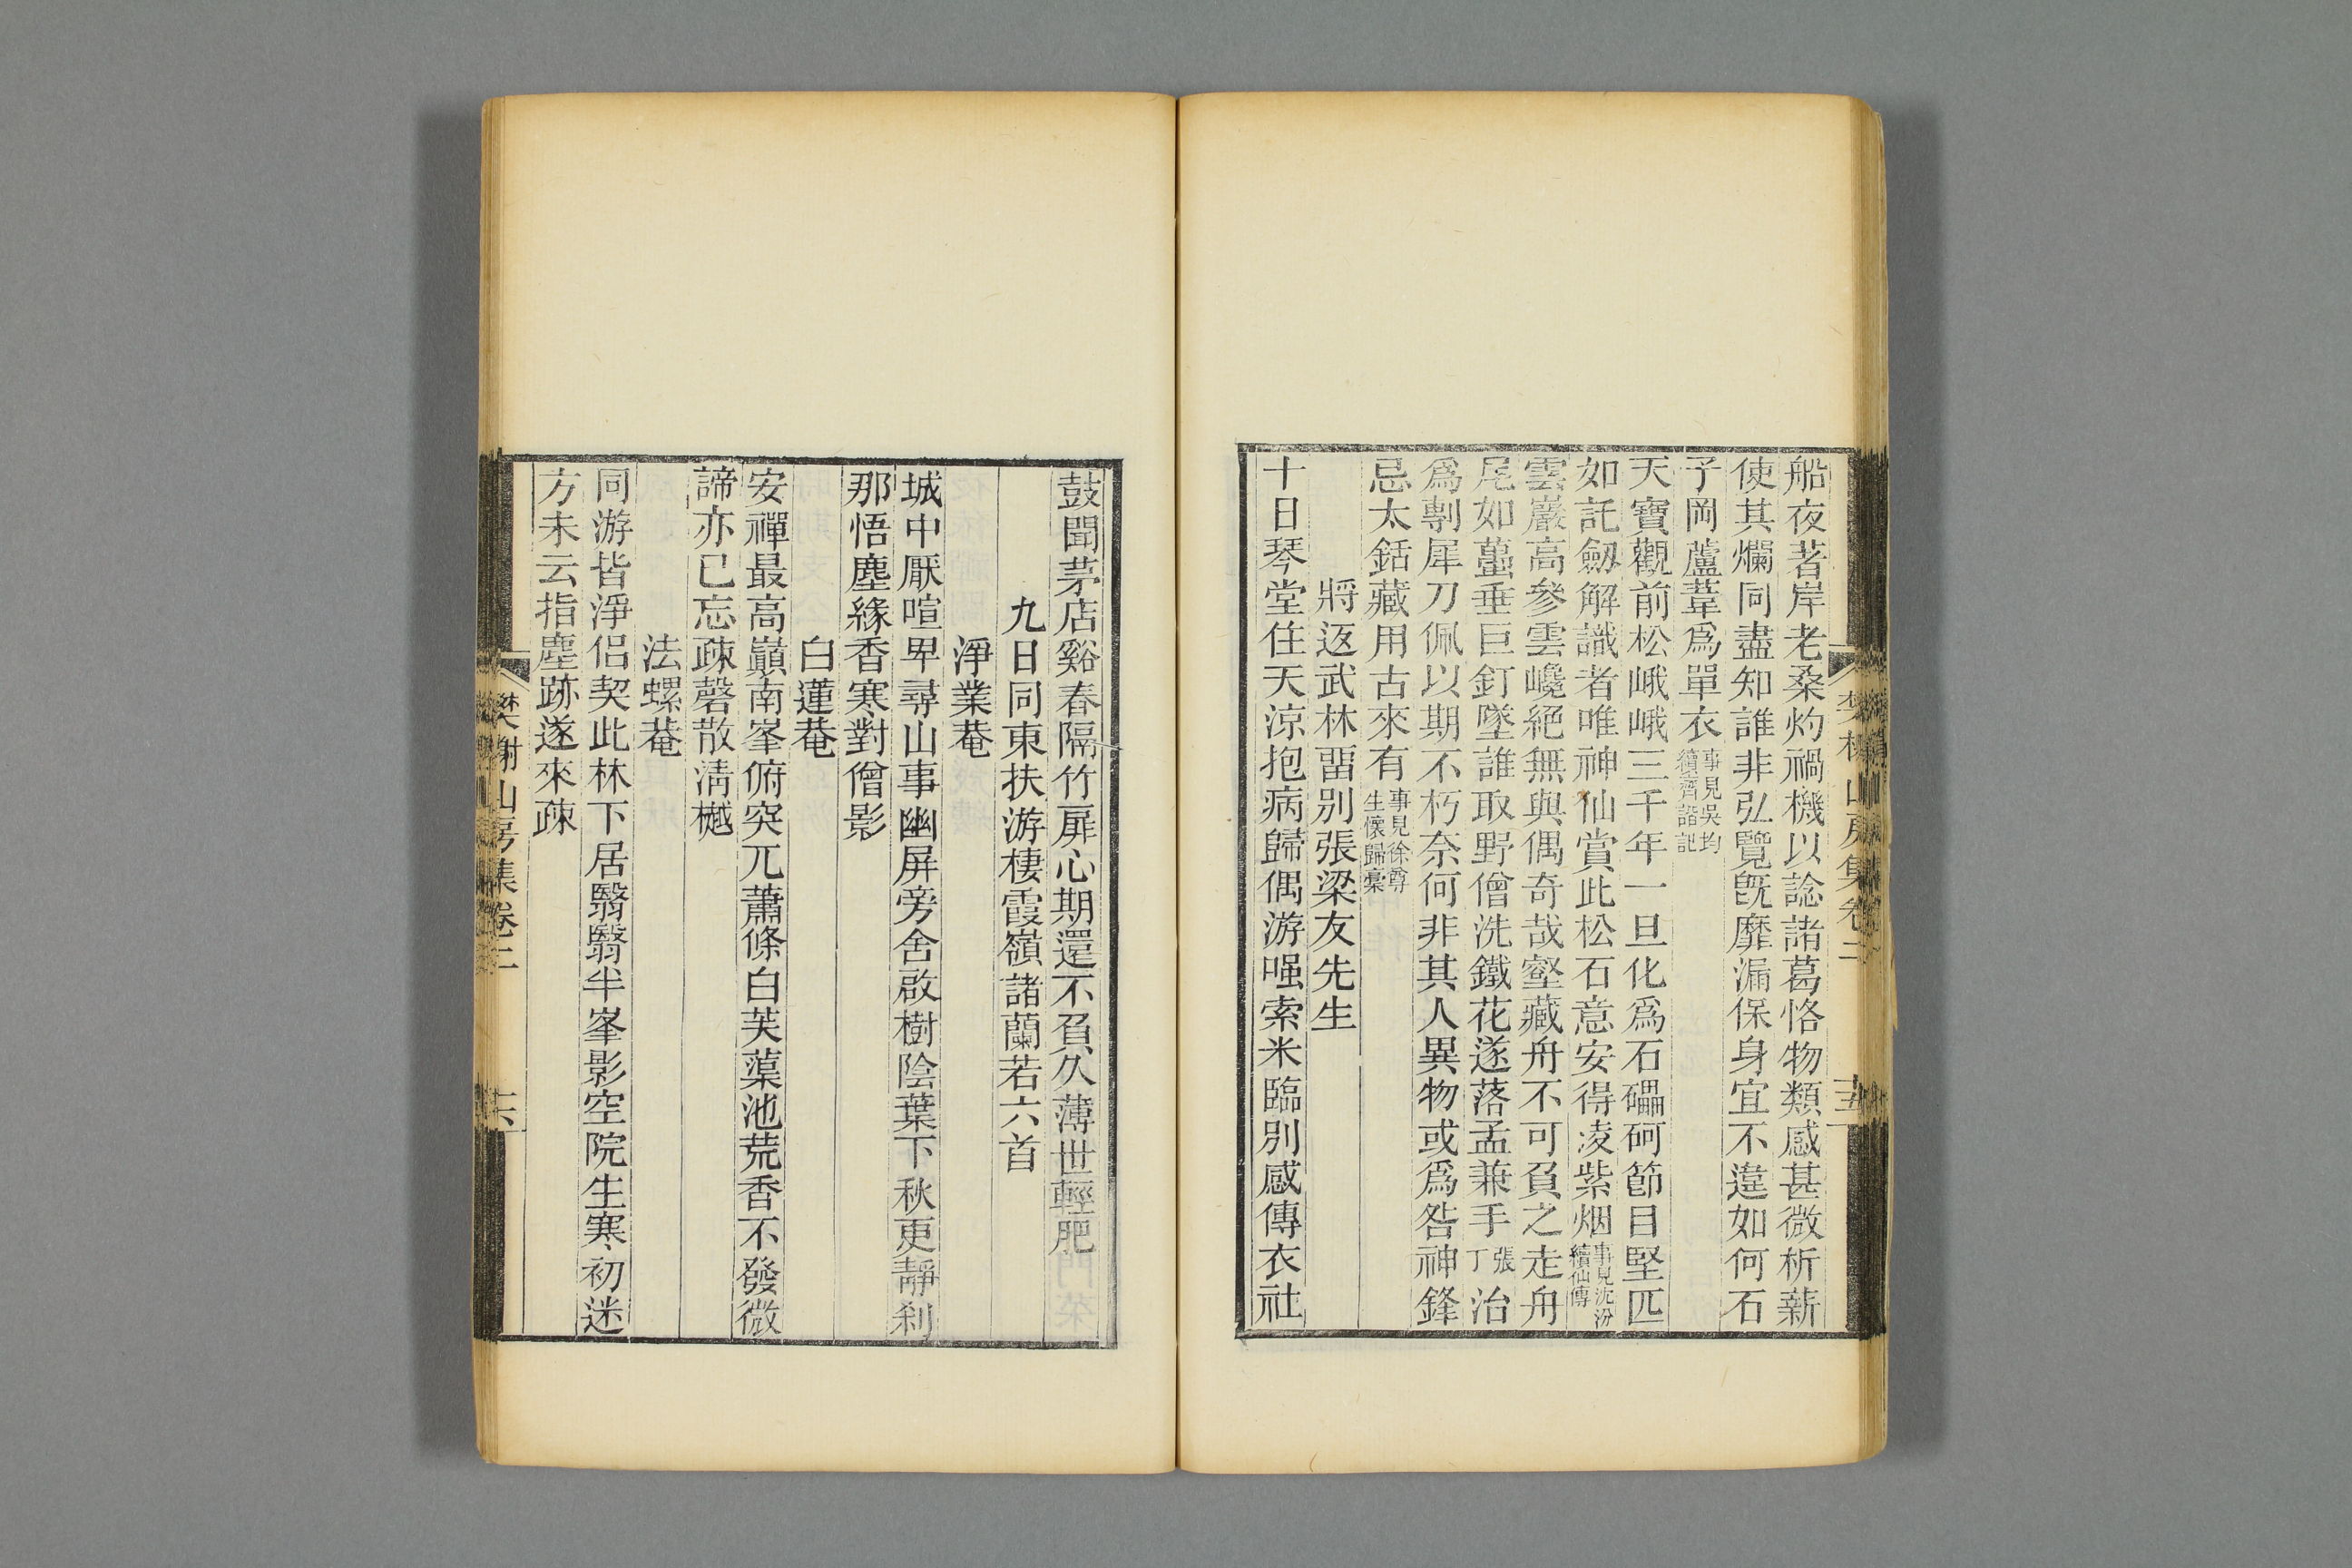 船夜著岸老桑灼禍機以諗諸葛恪物類感甚微析薪
使其爛同盡知誰非弘覽旣靡漏保身宜不違如何石
子岡蘆葦爲單衣事見吳均續齊諧記
天寶觀前松峨峨三千年一旦化爲石礧砢節目堅匹
如託劒解識者唯神仙賞此松石意安得凌紫烟事見沈汾續仙傳
雲巖高參雲巉絕無與偶奇哉壑藏舟不可負之走舟
尾如蠆垂巨釘墜誰取野僧洗鐵花遂落孟兼手張丁治
爲剸犀刀佩以期不朽奈何非其人異物或爲咎神鋒
忌太銛藏用古來有事見徐尊生懷歸稾
將返武林畱別張梁友先生
十日琴堂住天涼抱病歸偶游嗤索米臨別感傳衣社
樊榭山房集卷二
十五
鼓聞茅店谿春隔竹扉心期還不負久薄世輕肥
九日同東扶游棲霞嶺諸蘭若六首
淨業菴
城中厭喧卑尋山事幽屏旁舍啟樹陰葉下秋更靜刹
那悟塵緣香寒對僧影
白蓮菴
安禪最高巓南峯俯突兀蕭條白芙蕖池荒香不發微
諦亦已忘疎磬散淸樾
法螺菴
同游皆淨侶契此林下居翳翳半峯影空院生寒初迷
方未云指塵跡遂來疎
樊榭山房集卷二
十六